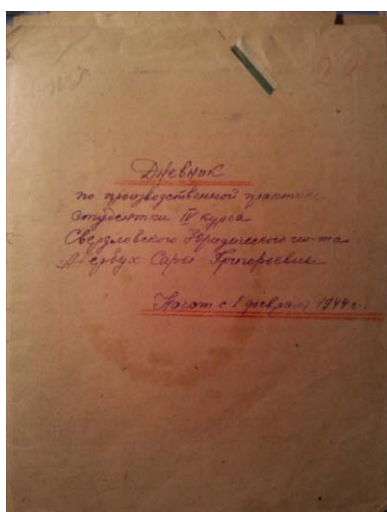 Дневник
по производственной практике
студентки IV курса
Свердловского Юридического ин-та
Сарры Григорьевны
Начат с 1 февраля 1944 г.